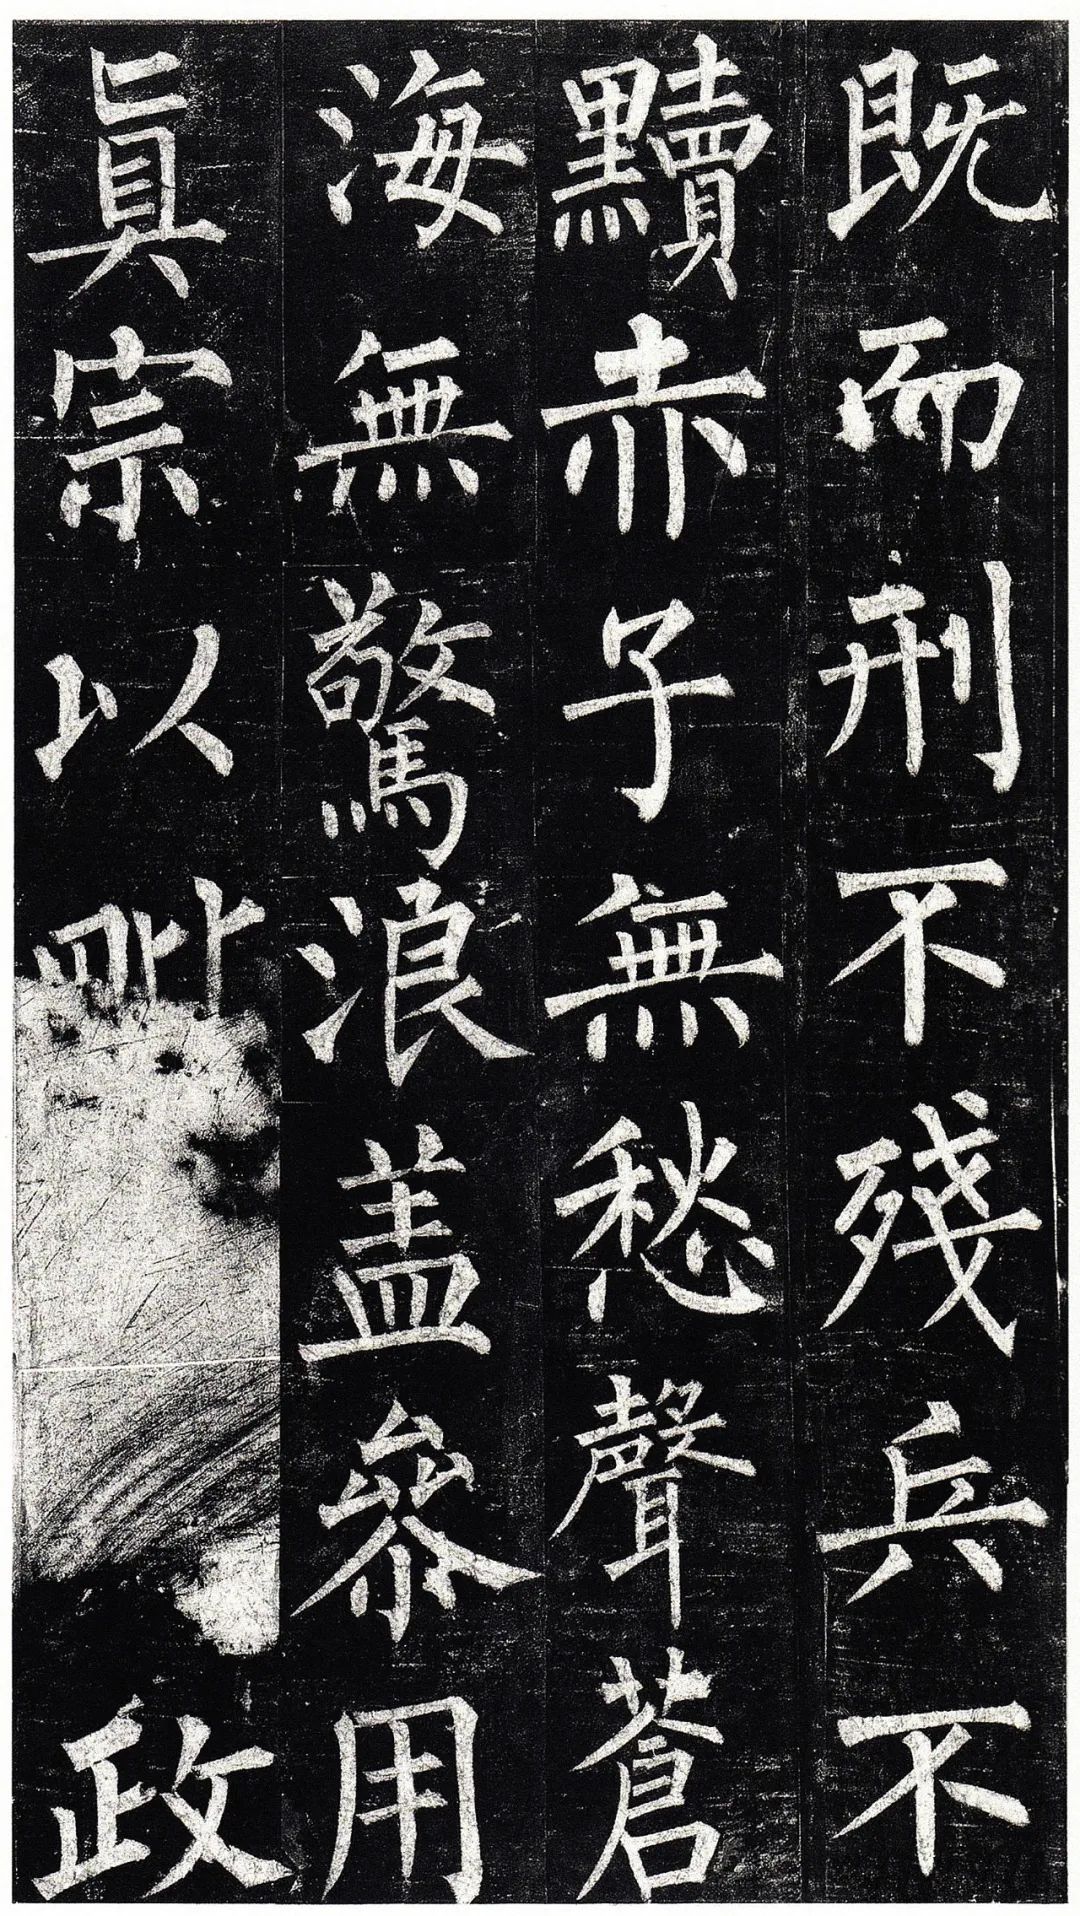 既而刑不殘兵不
黷赤子無愁聲蒼
海無驚浪盖叅用
眞宗以
政